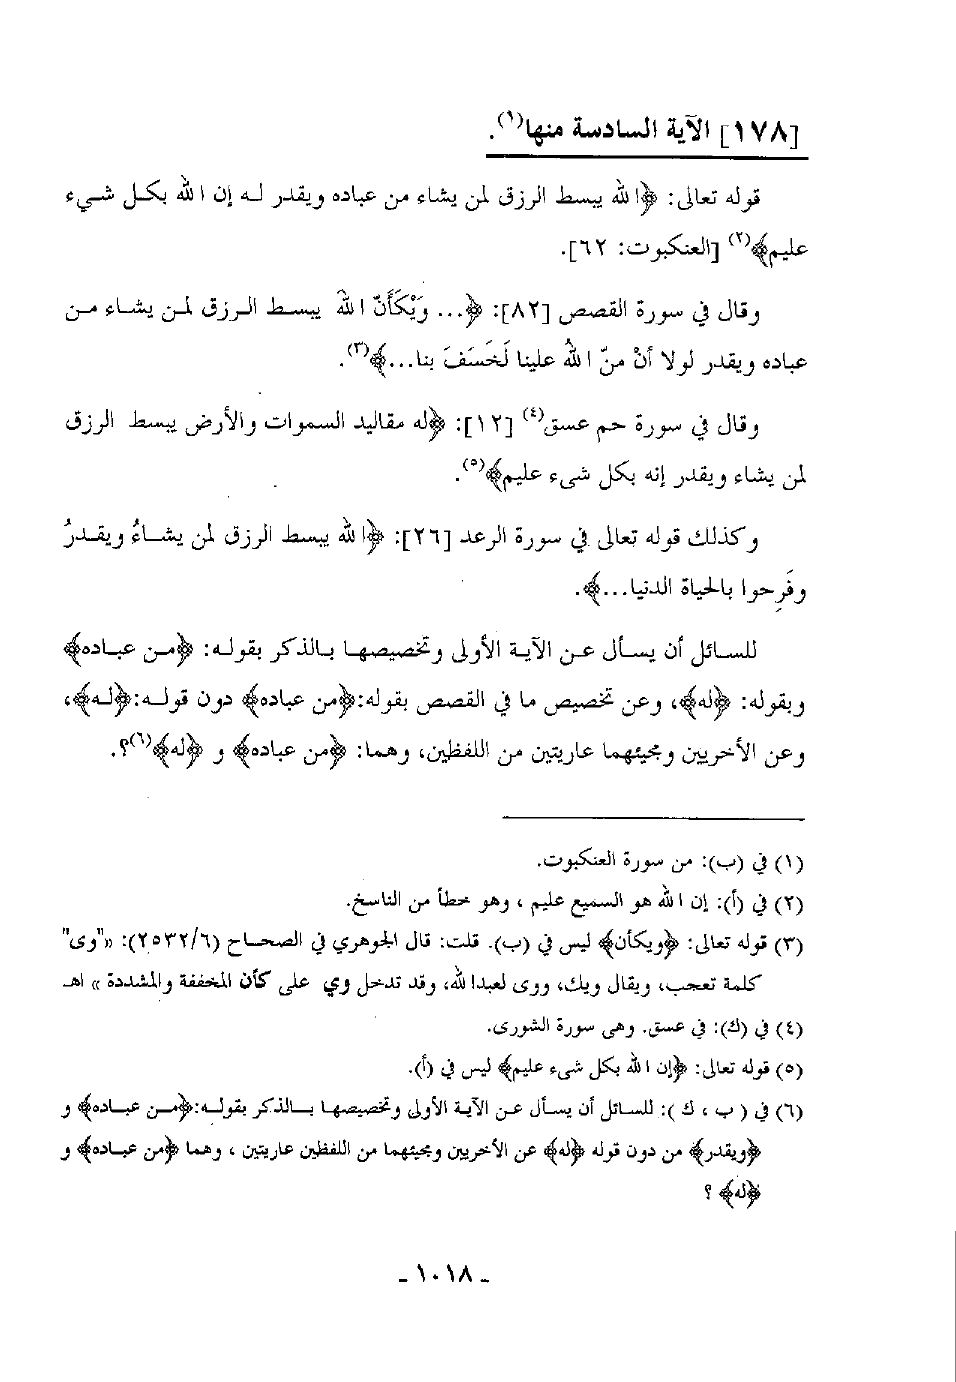 [١٧٨] الآية السادسة منها(١).
قوله تعالى: ﴿الله يبسط الرزق لمن يشاء من عباده ويقدر له إن الله بكل شيء
عليم﴾(٢) [العنكبوت: ٦٢].
وقال في سورة القصص [٨٢]: ﴿... وَيْكَأَنّ اللهَ يبسط الرزق لمن يشاء من
عباده ويقدر لولا أنْ منّ اللهُ علينا لَخَسَفَ بنا...﴾(٣).
وقال في سورة حم عسق(٤) [١٢]: ﴿له مقاليد السموات والأرض يبسط الرزق
لمن يشاء ويقدر إنه بكل شىء عليم﴾(٥).
وكذلك قوله تعالى في سورة الرعد [٢٦]: ﴿الله يبسط الرزق لمن يشاءُ ويقدرُ
وفَرِحوا بالحياة الدنيا...﴾.
للسائل أن يسأل عن الآية الأولى وتخصيصها بالذكر بقوله: ﴿من عباده﴾
وبقوله: ﴿له﴾، وعن تخصيص ما في القصص بقوله:﴿من عباده﴾ دون قوله:﴿له﴾،
وعن الأخريين ومجيئهما عاريتين من اللفظين، وهما: ﴿من عباده﴾ و ﴿له﴾(٦)؟.
(١) في (ب): من سورة العنكبوت.
(٢) في (أ): إن الله هو السميع عليم ، وهو خطأ من الناسخ.
(٣) قوله تعالى: ﴿ويكأن﴾ ليس في (ب). قلت: قال الجوهري في الصحاح (٢٥٣٢/٦): «"وى"
كلمة تعجب، ويقال ويك، ووى لعبدالله، وقد تدخل وي على كأن المخففة والمشددة » اهـ
(٤) في (ك): في عسق. وهى سورة الشورى.
(٥) قوله تعالى: ﴿إن الله بكل شىء عليم﴾ ليس في (أ).
(٦) في ( ب ، ك ): للسائل أن يسأل عن الآية الأولى وتخصيصها بالذكر بقوله:﴿من عباده﴾ و
﴿ويقدر﴾ من دون قوله ﴿له﴾ عن الأخريين ومجيئهما من اللفظين عاريتين ، وهما ﴿من عباده﴾ و
﴿له﴾ ؟
- ١٠١٨ -